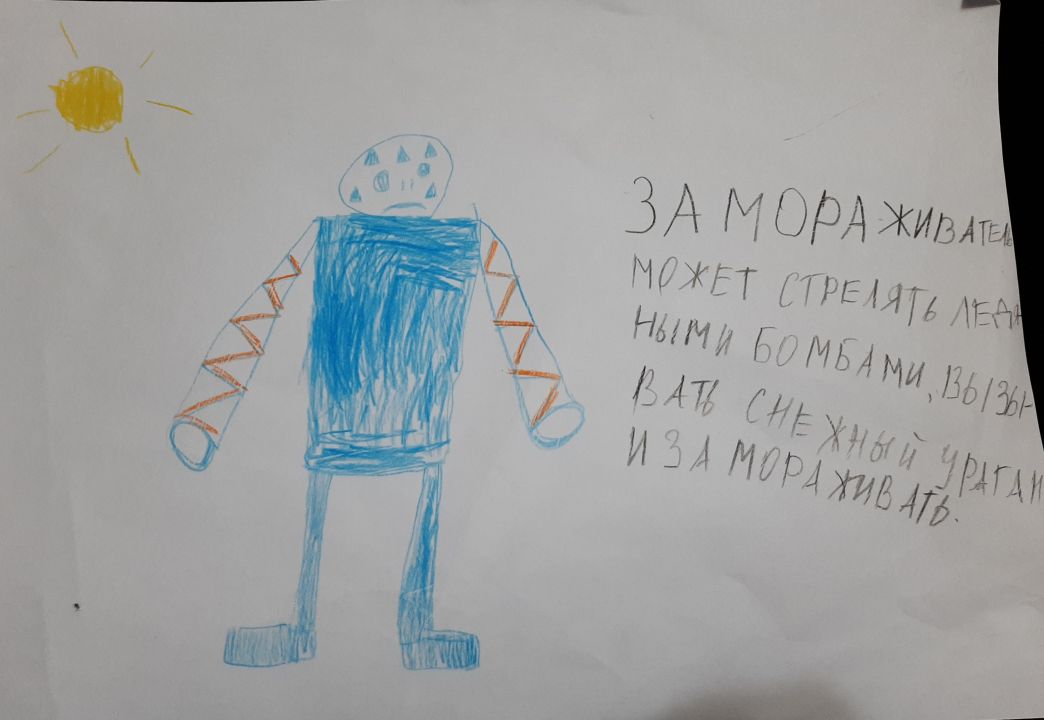 ЗАМОРАЖИВАТЕЛЬ
МОЖЕТ СТРЕЛЯТЬ ЛЕДЯ
НЫМИ БОМБАМИ, ВЫЗЫ-
ВАТЬ СНЕЖНЫЙ УРАГАН
И ЗАМОРАЖИВАТЬ.